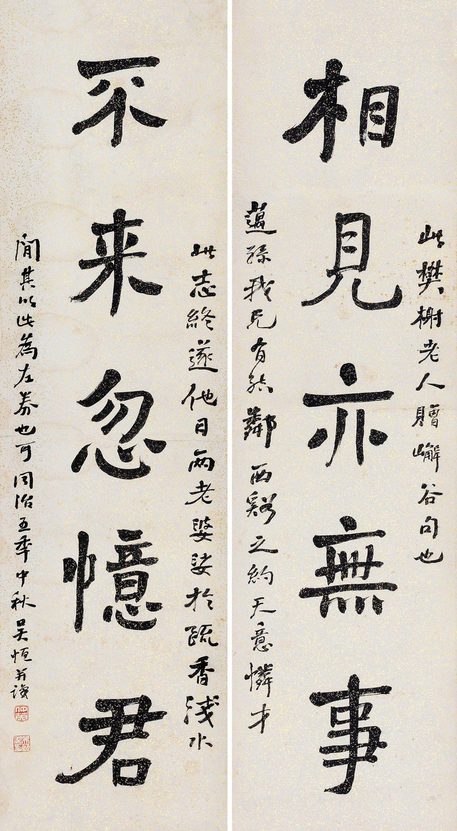 相見亦無事
此樊榭老人贈嶰谷句也
邁孫我兄有結鄰西谿之約天意憐才
不来忽憶君
此志終遂他日兩老婆娑於疏香淺水
間其以此為左券也可同治五年中秋吳恒并識